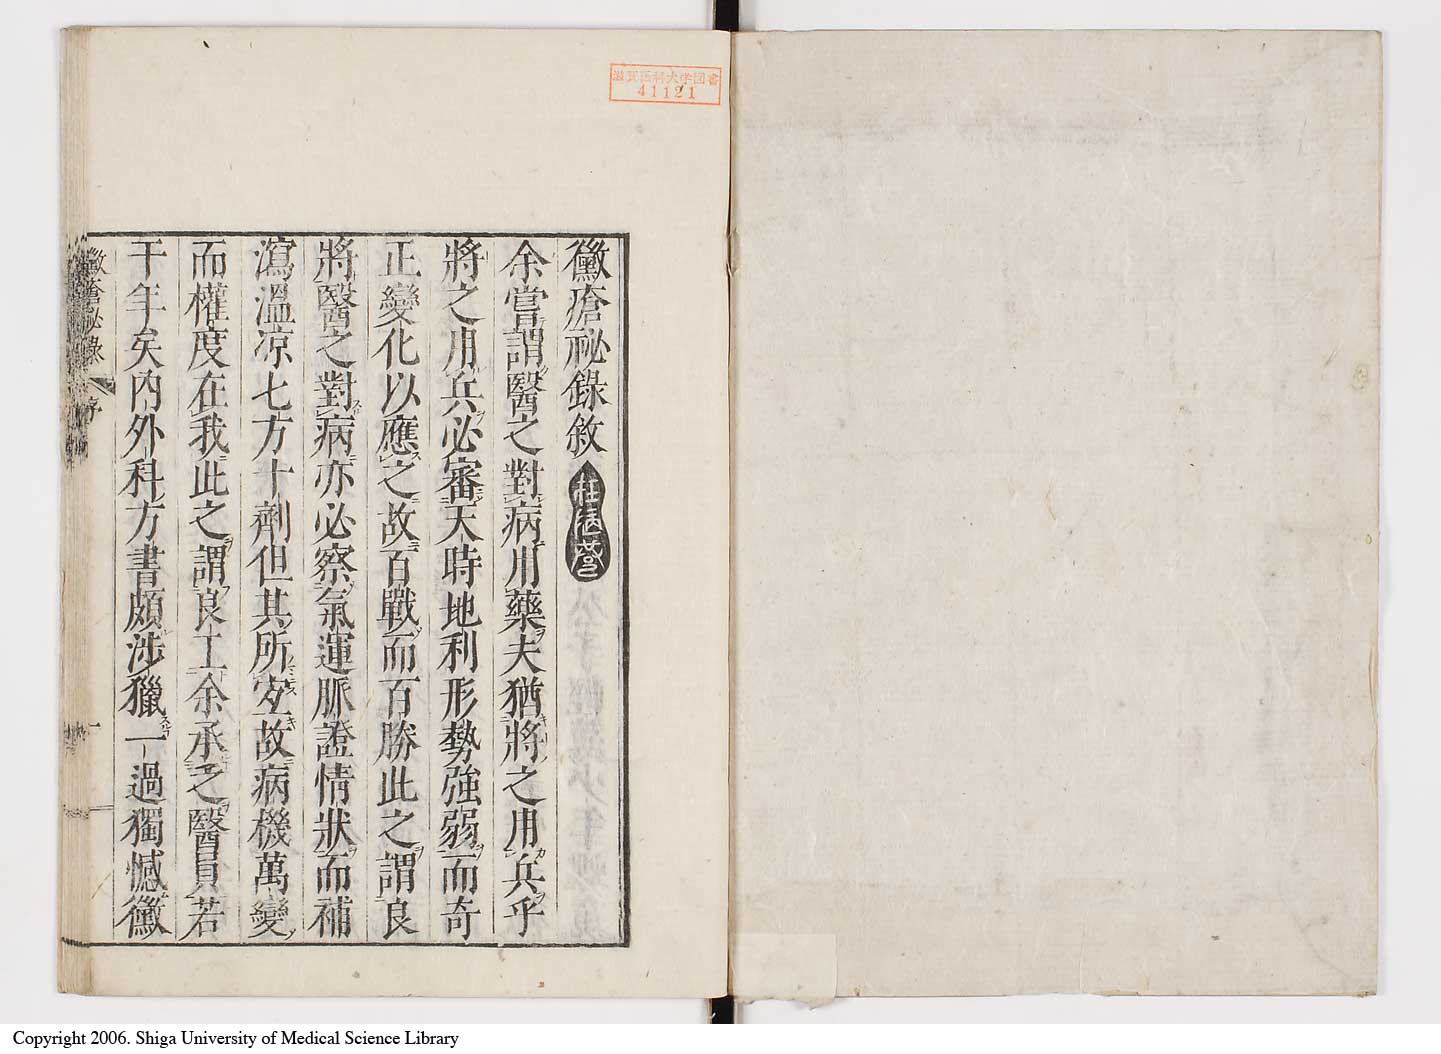 滋賀医科大学図書
41121
黴瘡祕錄敘
余嘗謂醫之對病用藥夫猶將之用兵乎
將之用兵必審天時地利形勢強弱而奇
正變化以應之故百戰而百勝此之謂良
將醫之對病亦必察氣運脈證情狀而補
瀉溫凉七方十劑但其所宜故病機萬變
而權度在我此之謂良工余承之醫員若
干年矣內外科方書頗涉獵一過獨憾黴
黴瘡祕錄 序 一
Copyright 2006. Shiga University of Medical Science Library